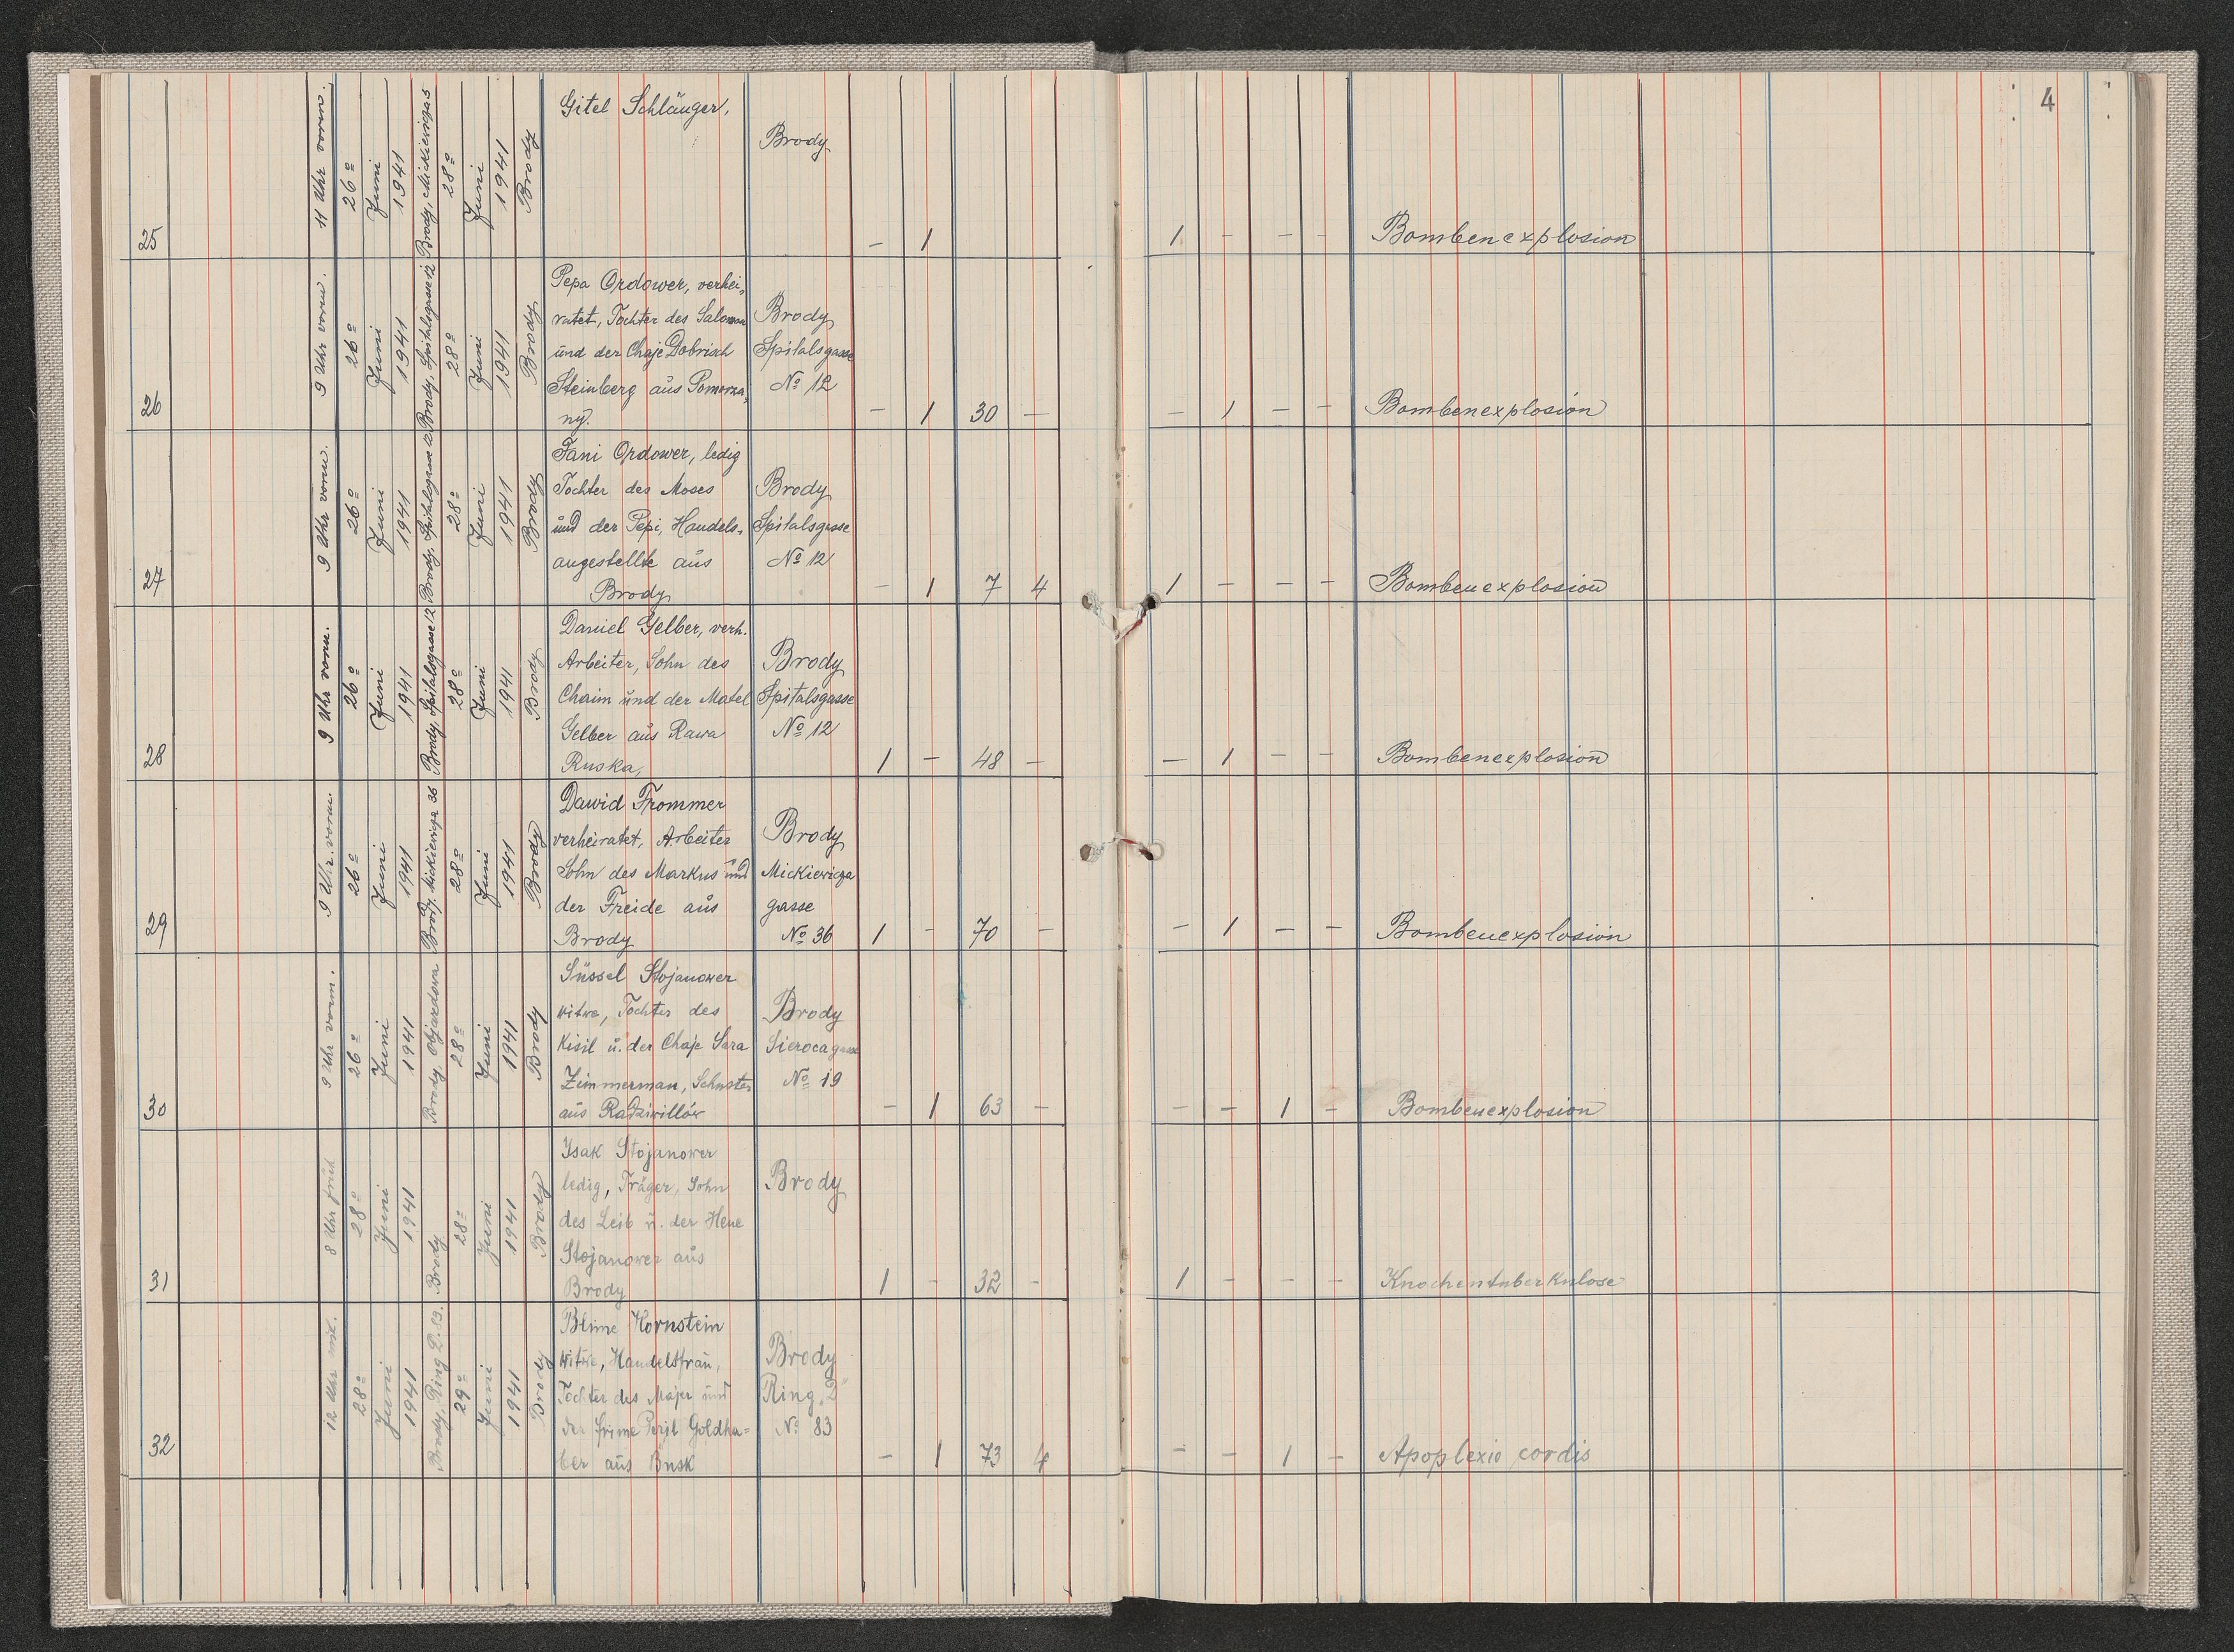 4
25
11 Uhr vorm.
26º
Juni
1941
Brody, Mickiewicza 5
28º
Juni
1941
Brody
Gitel Schlänger,
Brody
- 1
1 - - -
Bombenexplosion
26
9 Uhr vorm.
26º
Juni
1941
Brody, Spitalsgasse 12
28º
Juni
1941
Brody
Pepa Ordower, verhei-
ratet, Tochter des Salomon
und der Chaje Dobrisch
Steinberg aus Pomorza-
ny.
Brody
Spitalsgasse
Nº 12
- 1 30 -
- 1 - -
Bombenexplosion
27
9 Uhr vorm.
26º
Juni
1941
Brody, Spitalsgasse 12
28º
Juni
1941
Brody
Fani Ordower, ledig
Tochter des Moses
und der Pepi, Handels-
angestellte aus
Brody
Brody
Spitalsgasse
Nº 12
- 1 7 4
1 - - -
Bombenexplosion
28
9 Uhr vorm.
26º
Juni
1941
Brody, Spitalsgasse 12
28º
Juni
1941
Brody
Daniel Gelber, verh.
Arbeiter, Sohn des
Chaim und der Matel
Gelber aus Rawa
Ruska,
Brody
Spitalsgasse
Nº 12
1 - 48 -
- 1 - -
Bombenexplosion
29
9 Uhr. vorm.
26º
Juni
1941
Brody, Mickiewicza 36
28º
Juni
1941
Brody
Dawid Frommer
verheiratet, Arbeiter
Sohn des Markus und
der Freide aus
Brody
Brody
Mickiewicza
gasse
Nº 36
1 - 70 -
- 1 - -
Bombenexplosion
30
9 Uhr vorm.
26º
Juni
1941
Brody, Objazdowa
28º
Juni
1941
Brody
Süssel Stojanower
witwe, Tochter des
Kisil u. der Chaje Sara
Zimmerman, Schuster
aus Radziwillów
Brody
Sierocagasse
Nº 19
- 1 63 -
- - 1 -
Bombenexplosion
31
8 Uhr früh
28º
Juni
1941
Brody
28º
Juni
1941
Brody
Isak Stojanower
ledig, Träger, Sohn
des Leib u. der Hene
Stojanower aus
Brody
Brody
1 - 32 -
1 - - -
Knochentuberkulose
32
12 Uhr mit.
28º
Juni
1941
Brody, Ring 2. 83.
29º
Juni
1941
Brody
Blime Hornstein
witwe, Handelsfrau,
Tochter des Majer und
der Frime Perjl Goldha=
ber aus Busk
Brody
Ring „2"
Nº 83
- 1 73 4
- - 1 -
Apoplexio cordis